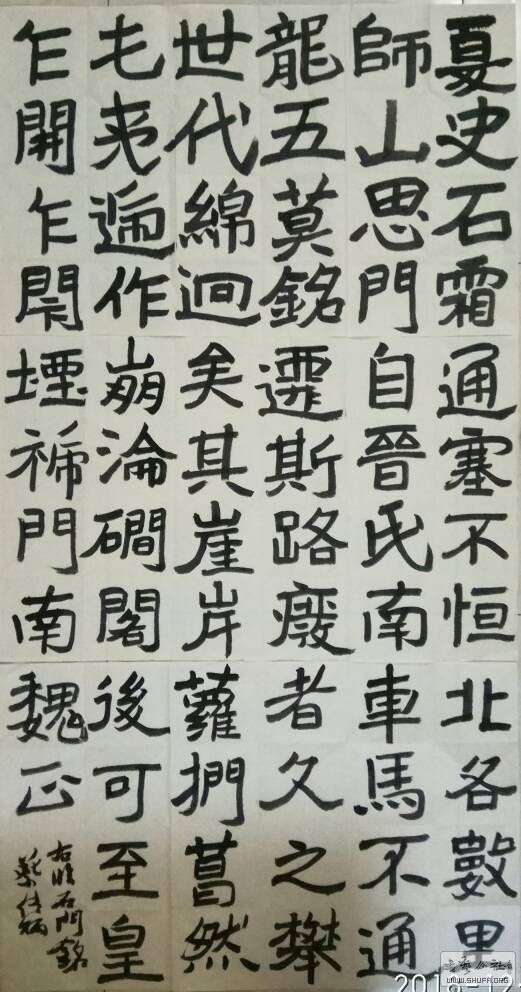 夏史石霜
師山思門
龍五莫銘
世代綿迴
屯夷遞作
乍開乍閇
通塞不恒
自晉氏南
遷斯路廢
矣其崖岸
崩淪磵閣
堙褫門南
北各數里
車馬不通
者久之攀
蘿捫葛然
後可至皇
魏正
右臨石門銘
WWW.SHUFF.ORG